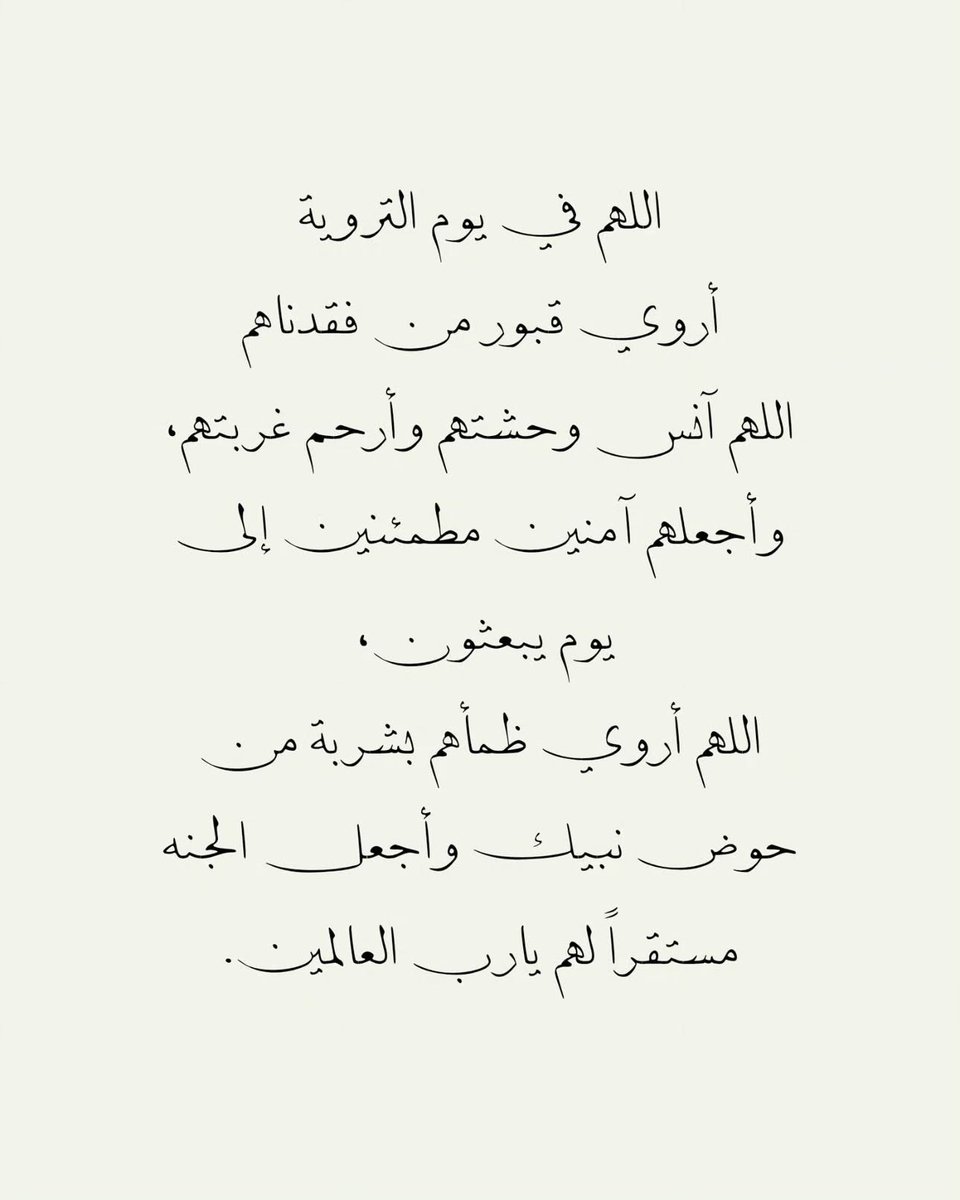 اللهم في يوم التروية
أروي قبور من فقدناهم
اللهم آنس وحشتهم وأرحم غربتهم،
وأجعلهم آمنين مطمئنين إلى
يوم يبعثون،
اللهم أروي ظمأهم بشربة من
حوض نبيك وأجعل الجنه
مستقراً لهم يارب العالمين.